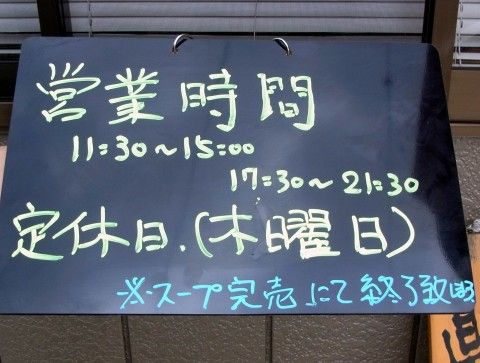 営業時間
11:30～15:00
17:30～21:30
定休日.(木曜日)
※スープ完売にて終了致します